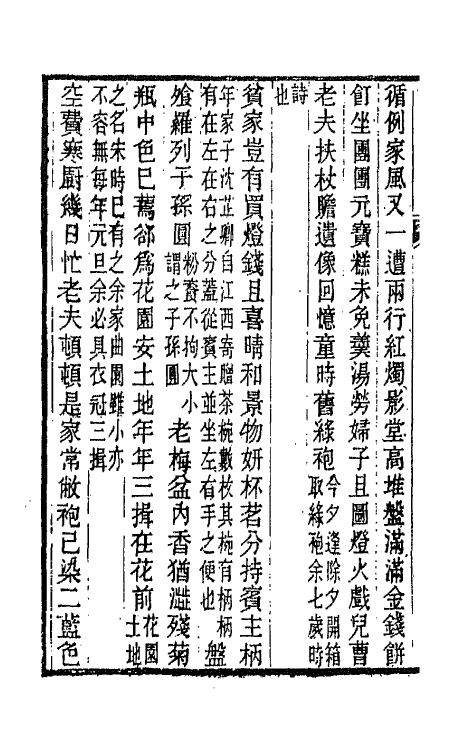 循例家風又一遭兩行紅燭影堂高堆盤滿滿金錢餅
飣坐團團元寶糕未免羹湯勞婦子且圖燈火戲兒曹
老夫扶杖瞻遺像回憶童時舊綠袍今夕逢除夕開箱
取綠袍余七歲時
詩
也
貧家豈有買燈錢且喜晴和景物妍杯茗分持賓主柄
年家子沈芷卿自江西寄贈茶椀數枚其椀有柄柄
有在左在右之分蓋從賓主並坐左有手之便也盤
飱羅列子孫圓粉裹不拘大小
謂之子孫圓老梅盆內香猶溢殘菊
瓶中色已蔫郤爲花園安土地年年三揖在花前花園
土地
之名宋時已有之余家曲園雖小亦
不容無每年元旦余必具衣冠三揖
空費寒廚幾日忙老夫頓頓是家常敝袍已染二藍色